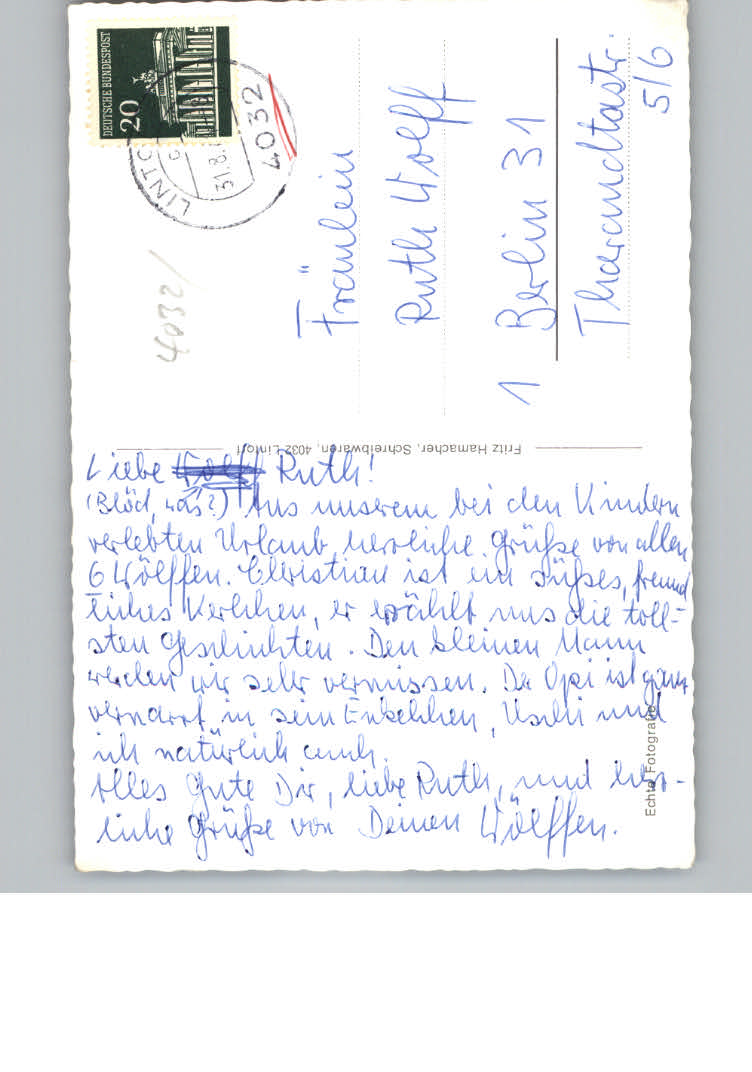 Liebe Ruth!
(Blöd, was?) Aus unserem bei den Kindern
verlebten Urlaub herzliche Grüße von allen
6 Wölffen. Christian ist ein süßes, freund
liches Kerlchen, er erzählt uns die toll-
sten Geschichten. Den kleinen Mann
werden wir sehr vermissen. Der Opi ist ganz
vernarrt in sein Enkelchen, Uschi und
ich natürlich auch.
Alles Gute Dir, liebe Ruth, und herz-
liche Grüße von Deinen Wölffen.
Fräulein
Ruth Wolff
1 Berlin 31
Tharandtastr.
5/6
4032/
DEUTSCHE BUNDESPOST
20
LINTO
31.8.
4032
Fritz Hamacher, Schreibwaren, 4032 Lintorf
Echte Fotografie